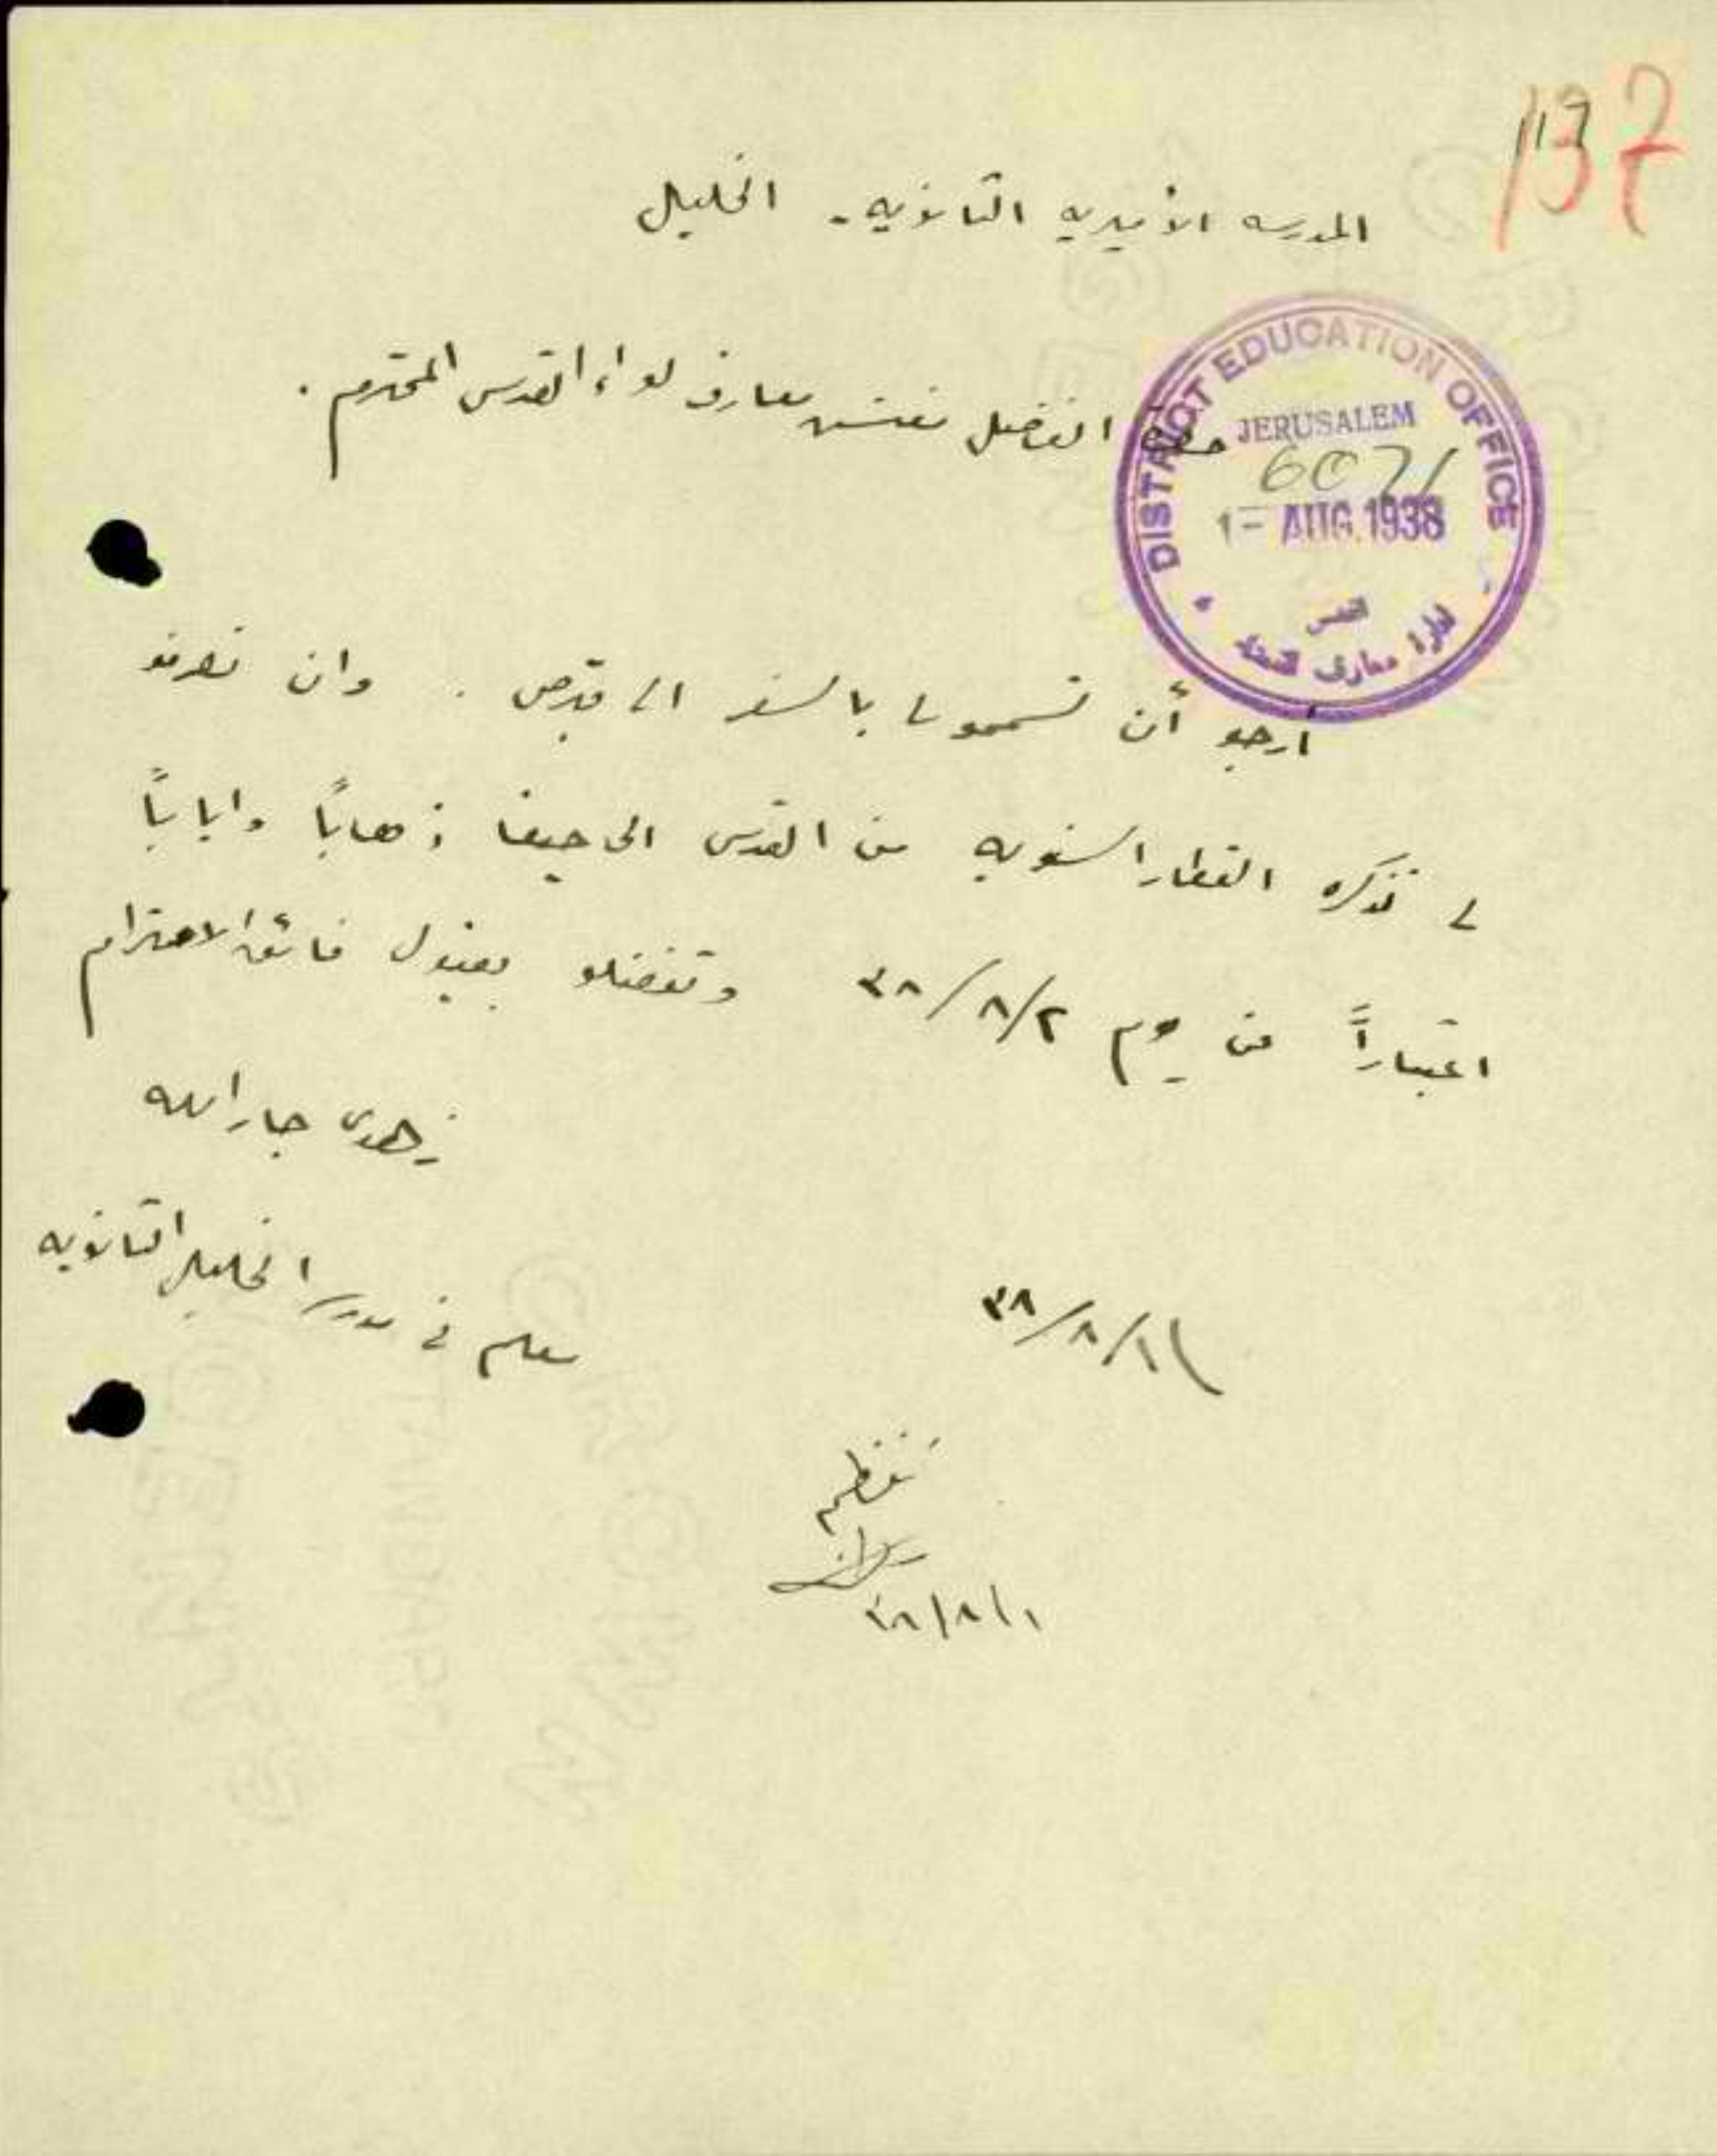 137
117
المدرسه الأميريه الثانويه - الخليل
DISTRICT EDUCATION OFFICE
JERUSALEM
6071
1 - AUG. 1938
القدس
ادارة معارف
حضرة الفاضل مفتش معارف لواء القدس المحترم .
أرجو أن تسمحوا لي بالسفر الى قبرص . وان تصرفو
لي تذكره القطار السنويه من القدس الى حيفا ذهاباً واياباً
اعتباراً من يوم ٢/٨/٣٨ وتفضلو بقبول فائق الاحترام
زهدي جارالله
معلم في مدرسة الخليل الثانويه
١/٨/٣٨
١/٨/٣٨